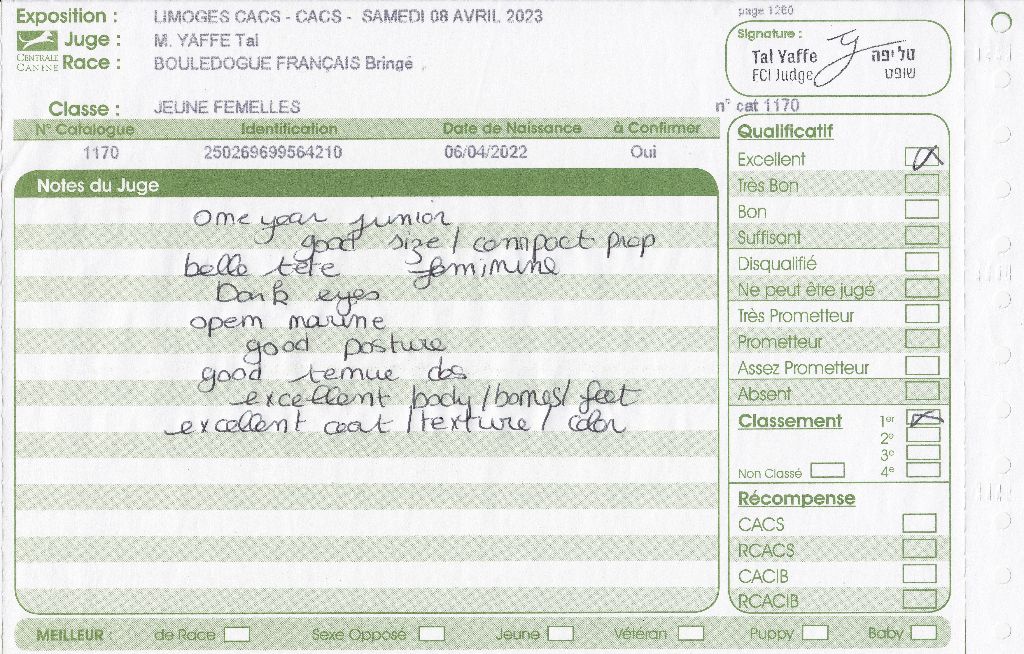 Exposition : LIMOGES CACS - CACS - SAMEDI 08 AVRIL 2023
Juge : M. YAFFE Tal
CENTRALE CANINE
Race : BOULEDOGUE FRANÇAIS Bringé
Classe : JEUNE FEMELLES
page 1260
Signature :
Tal Yaffe
FCI Judge
טל יפה
שופט
n° cat 1170
N° Catalogue Identification Date de Naissance à Confirmer
1170 250269699564210 06/04/2022 Oui
Notes du Juge
One year junior
good size / compact prop
belle tete feminine
Dark eyes
open narine
good posture
good tenue dos
excellent body / bones / feet
excellent coat / texture / color
Qualificatif
Excellent
Très Bon
Bon
Suffisant
Disqualifié
Ne peut être jugé
Très Prometteur
Prometteur
Assez Prometteur
Absent
Classement 1er
2e
3e
Non Classé 4e
Récompense
CACS
RCACS
CACIB
RCACIB
MEILLEUR : de Race Sexe Opposé Jeune Vétéran Puppy Baby